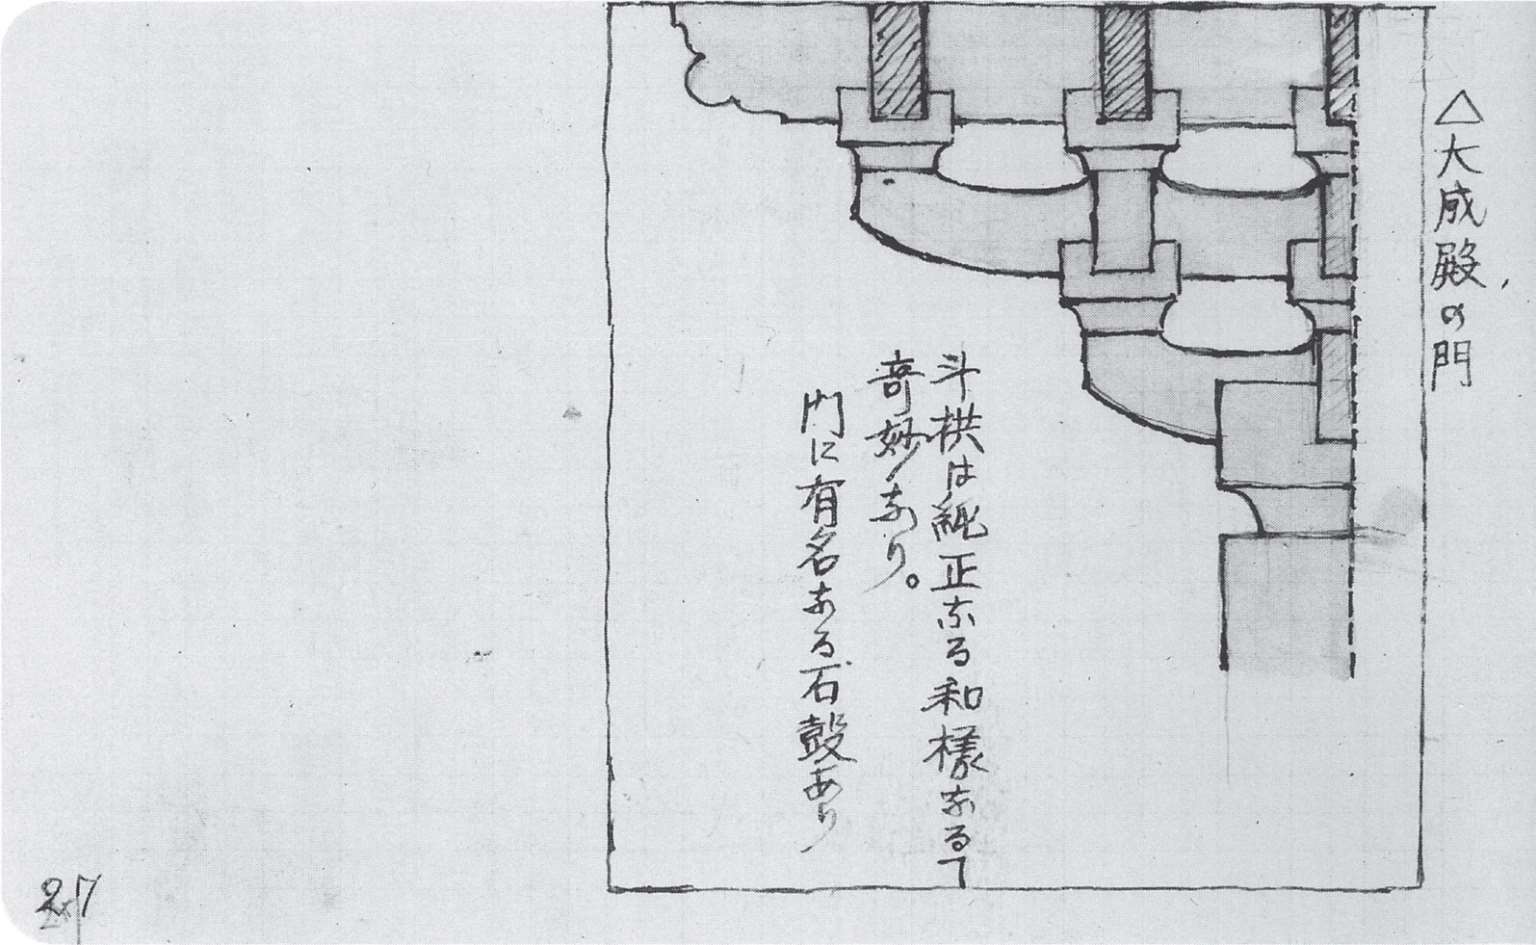 △大成殿の門、
斗栱は純正なる和樣なるヿ
奇妙なり。
門に有名なる石鼓あり
27